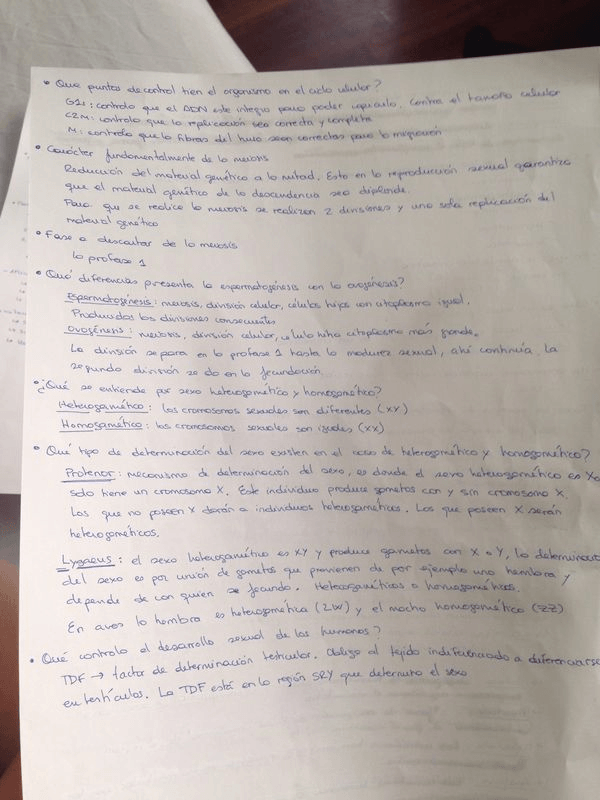 • Que puntos de control tien el organismo en el ciclo celular?
G1: controla que el ADN este integro para poder replicarlo. Contra el tamaño celular
G2M: controla que la replicación sea correcta y completa
M: controla que la fibras del huso sean correctas para la migración
• Carácter fundamentalmente de la meiosis
Reducción del material genético a la mitad. Esto en la reproducción sexual garantiza
que el material genético de la descendencia sea diferente.
Para que se realice la meiosis se realizan 2 divisiones y una sola replicación del
material genético
• Fase a descartar de la meiosis
La profase 1
• Qué diferencias presenta la espermatogénesis con la ovogénesis?
Espermatogénesis: meiosis, división celular, células hijas con citoplasma igual.
Producidas las divisiones consecuentes
Ovogénesis: meiosis, división celular, célula hija citoplasma más grande.
La división se para en la profase 1 hasta la madurez sexual, ahí continúa. La
segunda división se da en la fecundación.
• ¿Qué se entiende por sexo heterogamético y homogamético?
Heterogamético: los cromosomas sexuales son diferentes (XY)
Homogamético: los cromosomas sexuales son iguales (XX)
• Qué tipo de determinación del sexo existen en el caso de heterogamético y homogamético?
Protenor: mecanismo de determinación del sexo, es donde el sexo heterogamético es Xo
solo tiene un cromosoma X. Este individuo produce gametos con y sin cromosoma X.
Los que no poseen X darán a individuos heterogaméticos. Los que poseen X serán
heterogaméticos.
Lygaeus: el sexo heterogamético es XY y produce gametos con X o Y, la determinació
del sexo es por unión de gametos que provienen de por ejemplo una hembra y
depende de con quien se fecunda. Heterogaméticos o homogaméticos.
En aves la hembra es heterogamética (ZW) y el macho homogamético (ZZ)
• Qué controla el desarrollo sexual de los humanos?
TDF → factor de determinación testicular. Obliga al tejido indiferenciado a diferenciarse
en testículos. La TDF está en la región SRY que determina el sexo